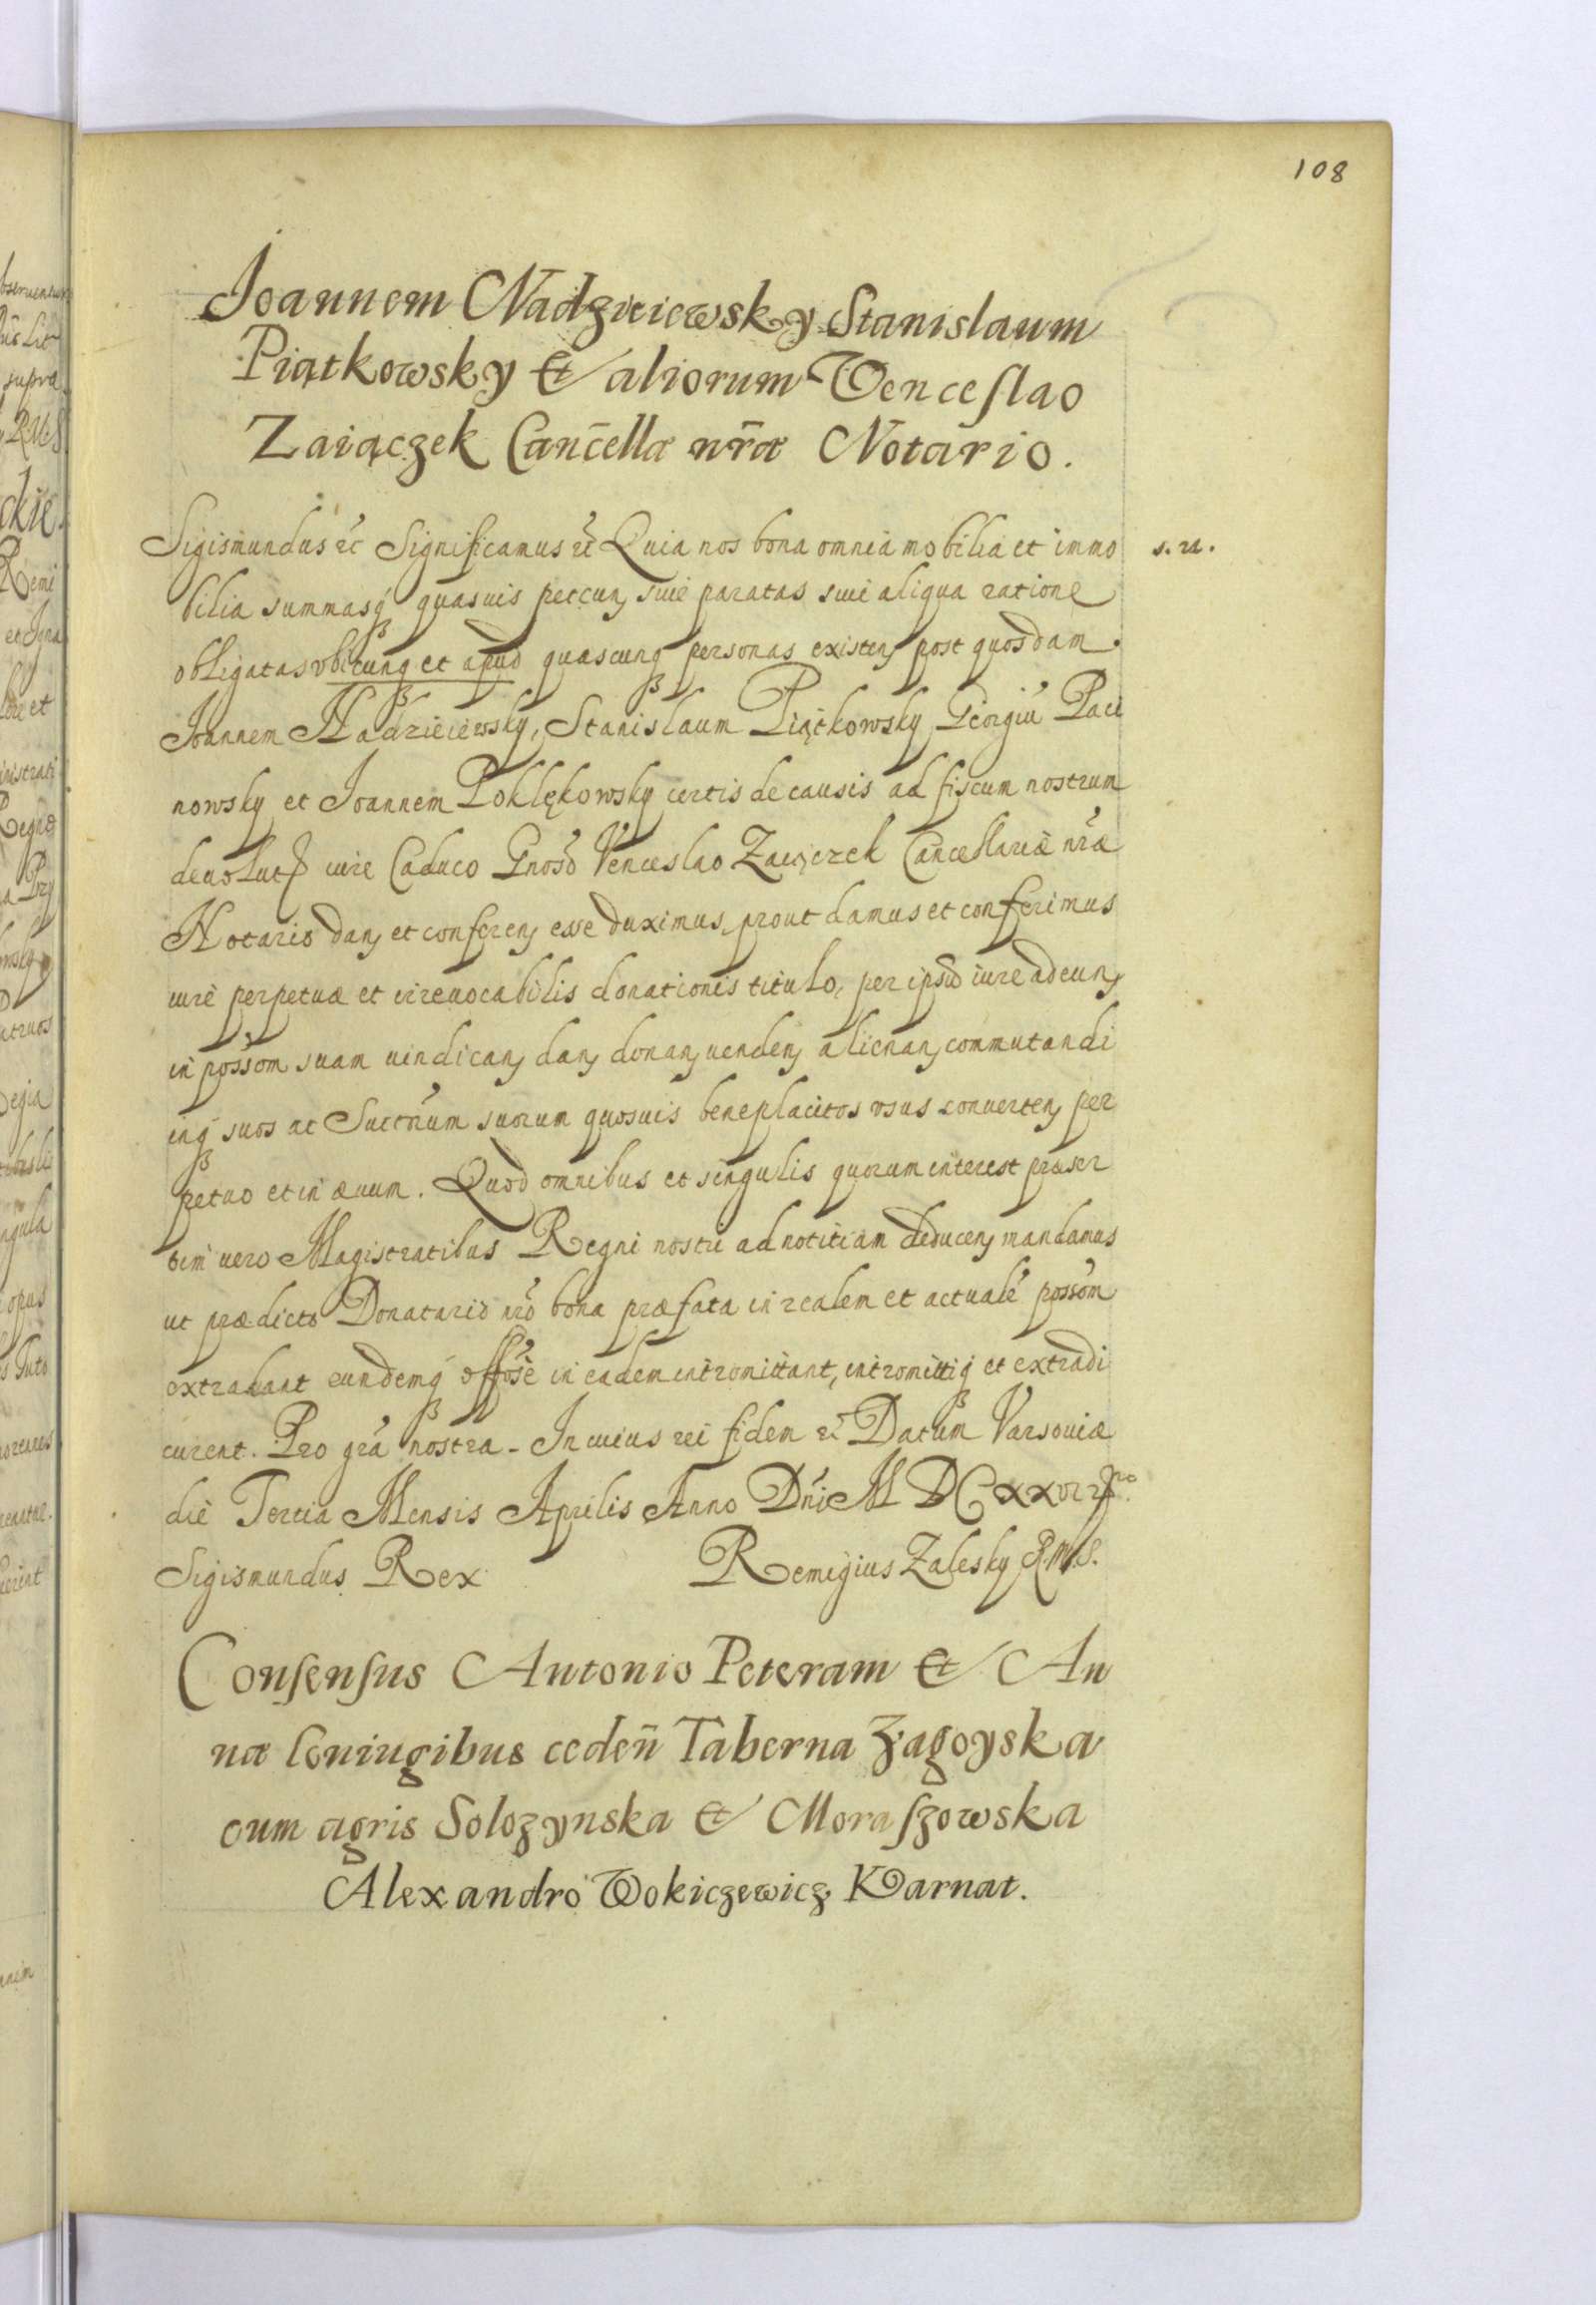 108
Joannem Nadzieiewsky Stanislaum
Piątkowsky & aliorum Wenceslao
Zaiączek Canc̄ellæ nr̃æ Notario.
Sigismundus etc Significamus etc Quia nos bona omnia mobilia et immo
s. n.
bilia summasq́ quasuis peccun siue paratas siue aliqua ratione
obligatas vbicunq et apud quascunq personas existen post quosdam
Joannem Nadzieiewsky, Stanislaum Piątkowsky Georgiu Paci
nowsky et Joannem Poklękowsky certis de causis ad fiscum nostrum
deuolut iure Caduco Gnoso Venceslao Zaiączek Cancellariæ nr̃æ
Notario dan et conferen esse duximus, prout damus et conferimus
iure perpetuæ et irreuocabilis donationis titulo, per ipsu iure adeun
in possom suam uindican dan donan uenden alienan commutandi
inq́ suos ac Succrum suorum quosuis beneplacitos vsus conuerten per
petuo et in æuum. Quod omnibus et singulis quorum interest præser
tim uero Magistratibus Regni nostri ad notitiam deducen mandamus
ut prædicto Donatario nro bona præfata in realem et actuale possom
extradant eundemq́ offose in eadem intromittant, intromittiq́ et extradi
curent. Pro gra nostra - In cuius rei fidem etc Datum Varsouiæ
die Tertia Mensis Aprilis Anno Dni M DC xxvii
Sigismundus Rex Remigius Zalesky R.M.S.
Consensus Antonio Peteram & An
næ Coniugibus ceden̄ Taberna Zagoyska
cum agris Solozynska & Moraszowska
Alexandro Wokiczewicz Karnat.